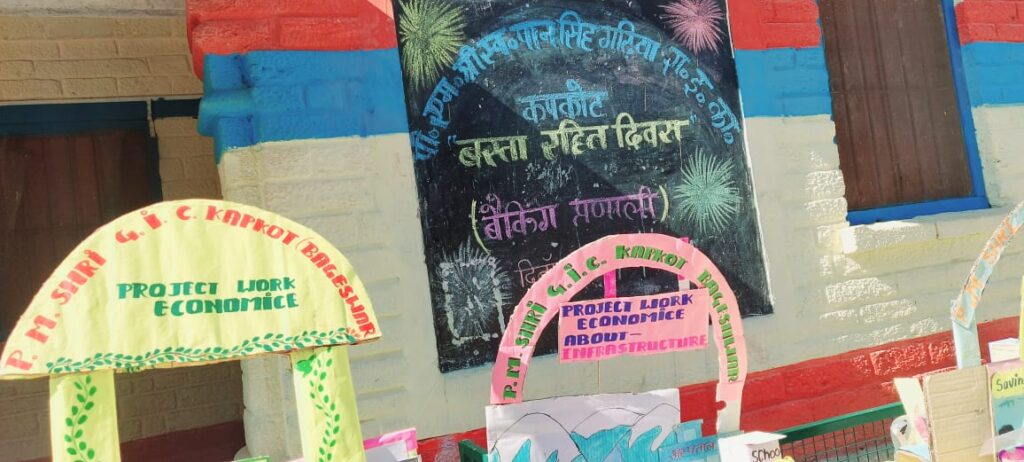 पी. एम. श्री स्व. पान सिंह गड़िया रा. इ. कॉ.
कपकोट
"बस्ता रहित दिवस"
(बैंकिंग प्रणाली)
P. M. SHRI G. I. C. KAPKOT (BAGESWAR
PROJECT WORK
ECONOMICE
P. M. SHRI G. I. C. KAPKOT BAGESHWAR
PROJECT WORK
ECONOMICE
ABOUT -
INFRASTRUCTURE
SCHOOL
Savin